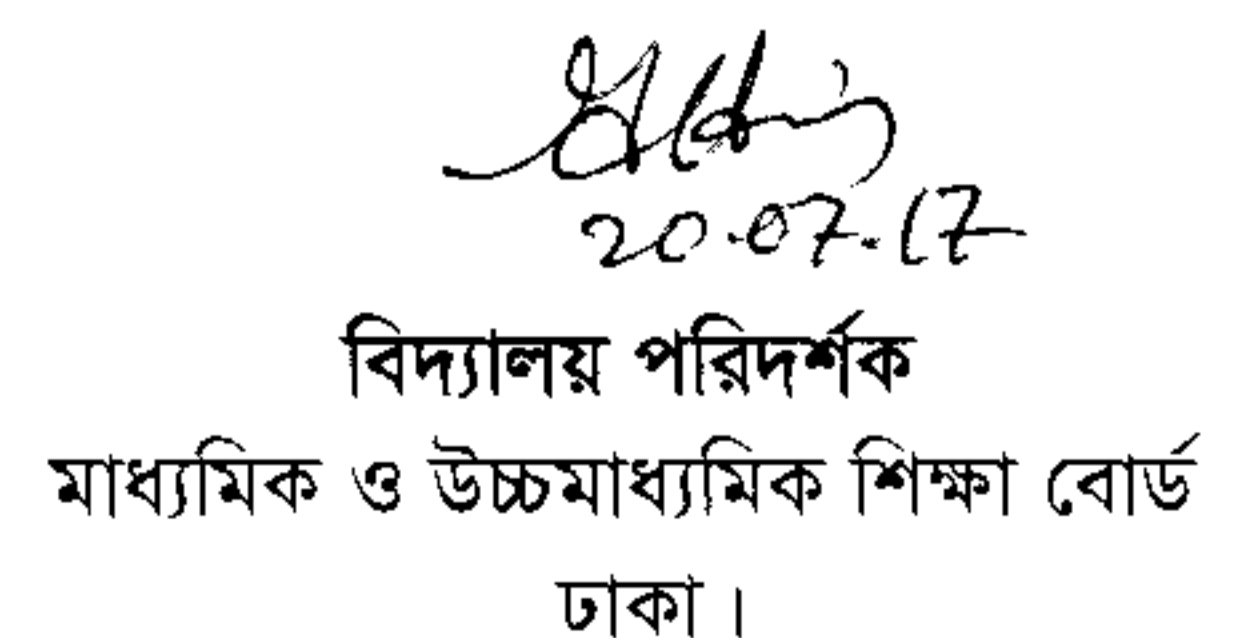 20.07.17
বিদ্যালয় পরিদর্শক
মাধ্যমিক ও উচ্চমাধ্যমিক শিক্ষা বোর্ড
ঢাকা।